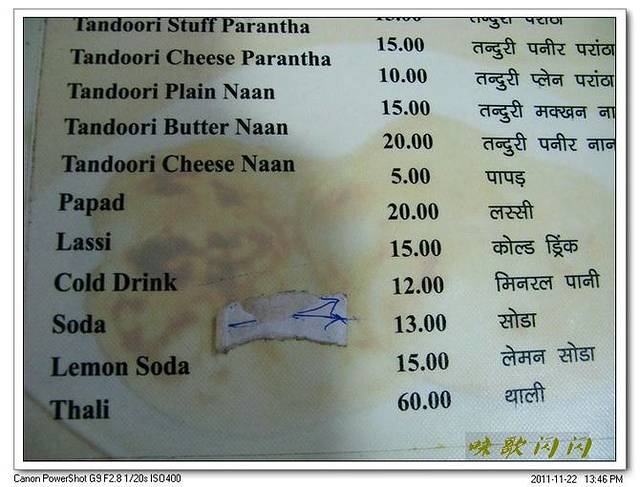 Tandoori Stuff Parantha 15.00 तन्दुरी परांठा
Tandoori Cheese Parantha 15.00 तन्दुरी पनीर परांठा
Tandoori Plain Naan 10.00 तन्दुरी प्लेन परांठा
Tandoori Butter Naan 15.00 तन्दुरी मक्खन ना
Tandoori Cheese Naan 20.00 तन्दुरी पनीर नान
Papad 5.00 पापड़
Lassi 20.00 लस्सी
Cold Drink 15.00 कोल्ड ड्रिंक
12.00 मिनरल पानी
Soda 13.00 सोडा
Lemon Soda 15.00 लेमन सोडा
Thali 60.00 थाली
味歌闪闪
Canon PowerShot G9 F2.8 1/20s ISO400 2011-11-22 13:46 PM